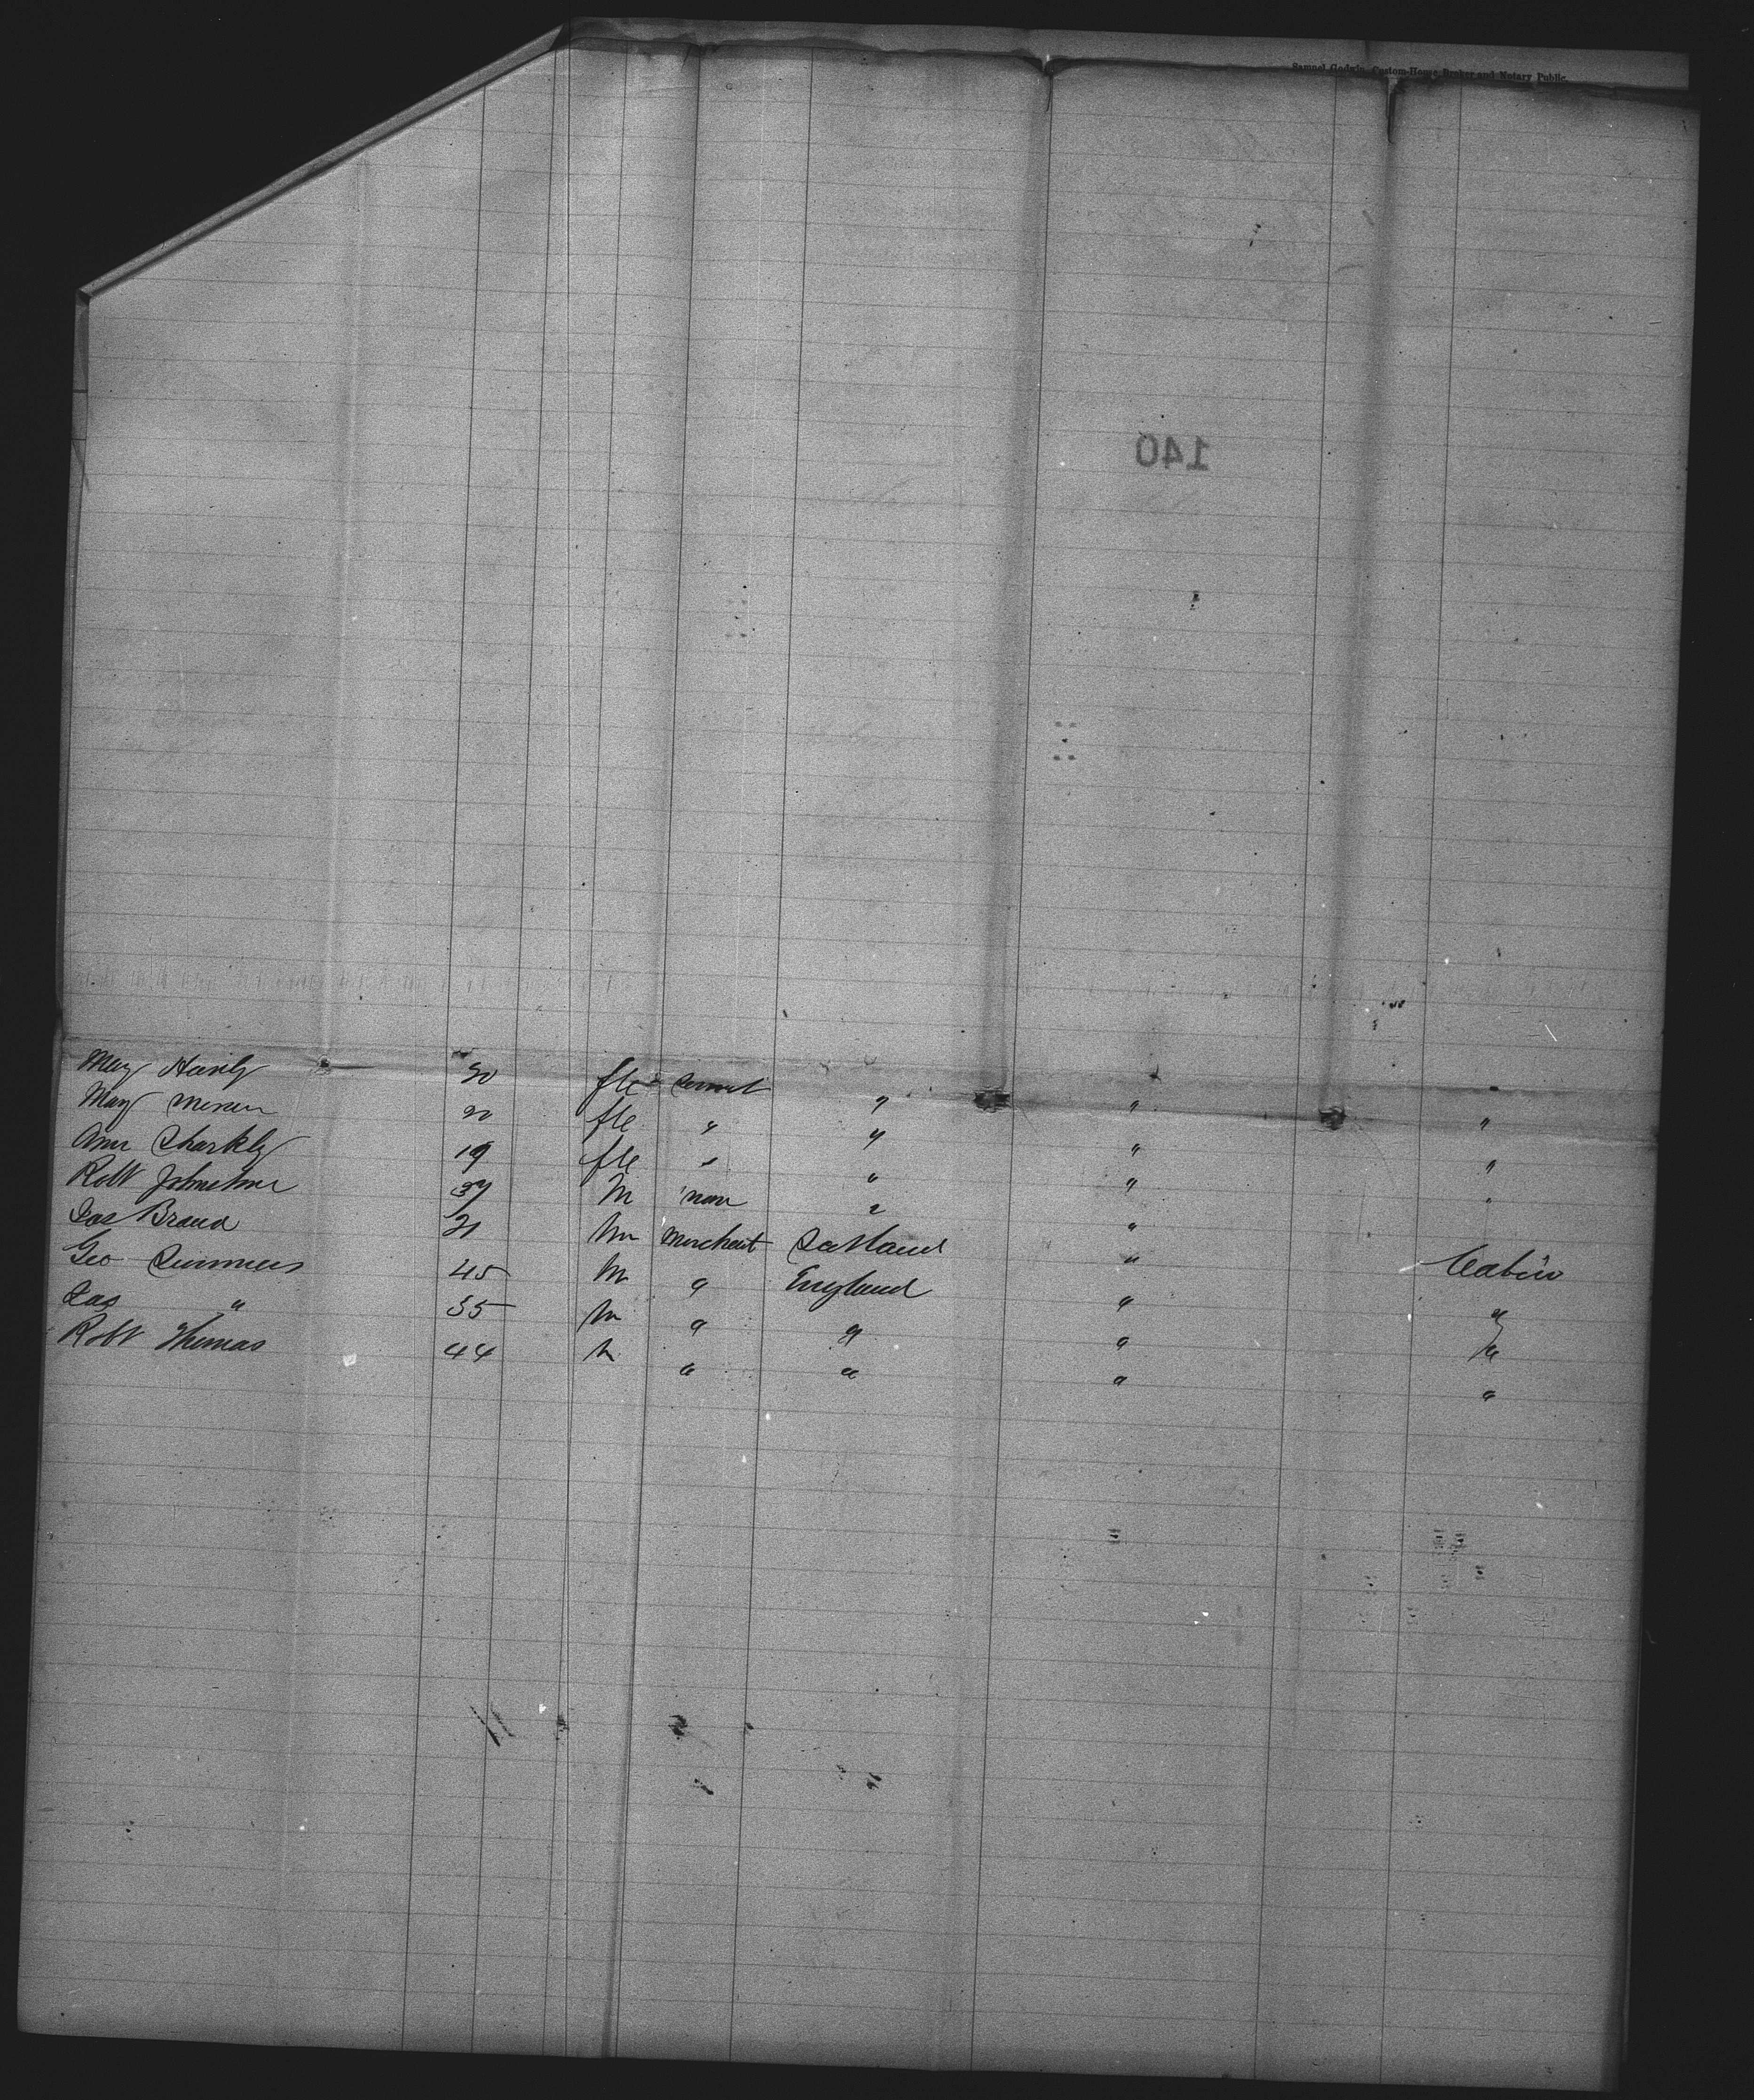 Samuel Godwin, Custom-House Broker and Notary Public.
140
Mary 20 fle Servant " "
Mary 20 fle " " " "
Ann Sharkly 19 fle " " " "
Robt Johnstone 37 M none " " "
Jas Brand 21 M Merchant Scotland " Cabin
Geo Summers 45 M " England " "
Jas " 35 M " " " "
Robt Thomas 44 M " " " "